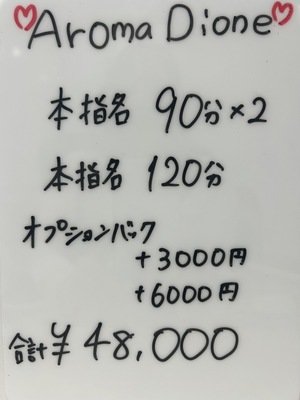 ♡Aroma Dione♡
本指名 90分×2
本指名 120分
オプションバック
+3000円
+6000円
合計¥48,000